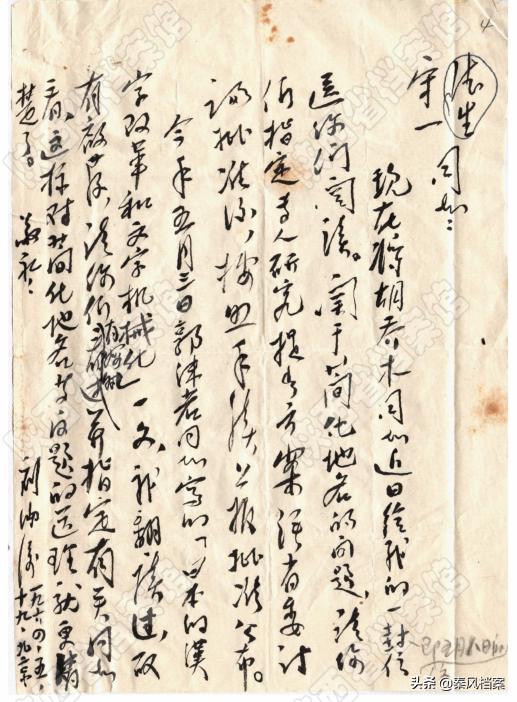 4
德生
守一同志：
现在将胡乔木同志近日给我的一封信
送你们阅读。关于简化地名的问题，请你
们指定专人研究提出方案经省委讨
论批准后，按照手续上报批准公布。
今年五月三日郭沫若同志写的「日本的汉
字改革和文字机械化」一文，我翻读过，颇
有启发，请你们 并指定有关同志
看，这样对简化地名等问题的道理就更清
楚了。
敬礼：
刘澜涛
一九六四、五、
陕西省档案馆
头条 @秦风档案